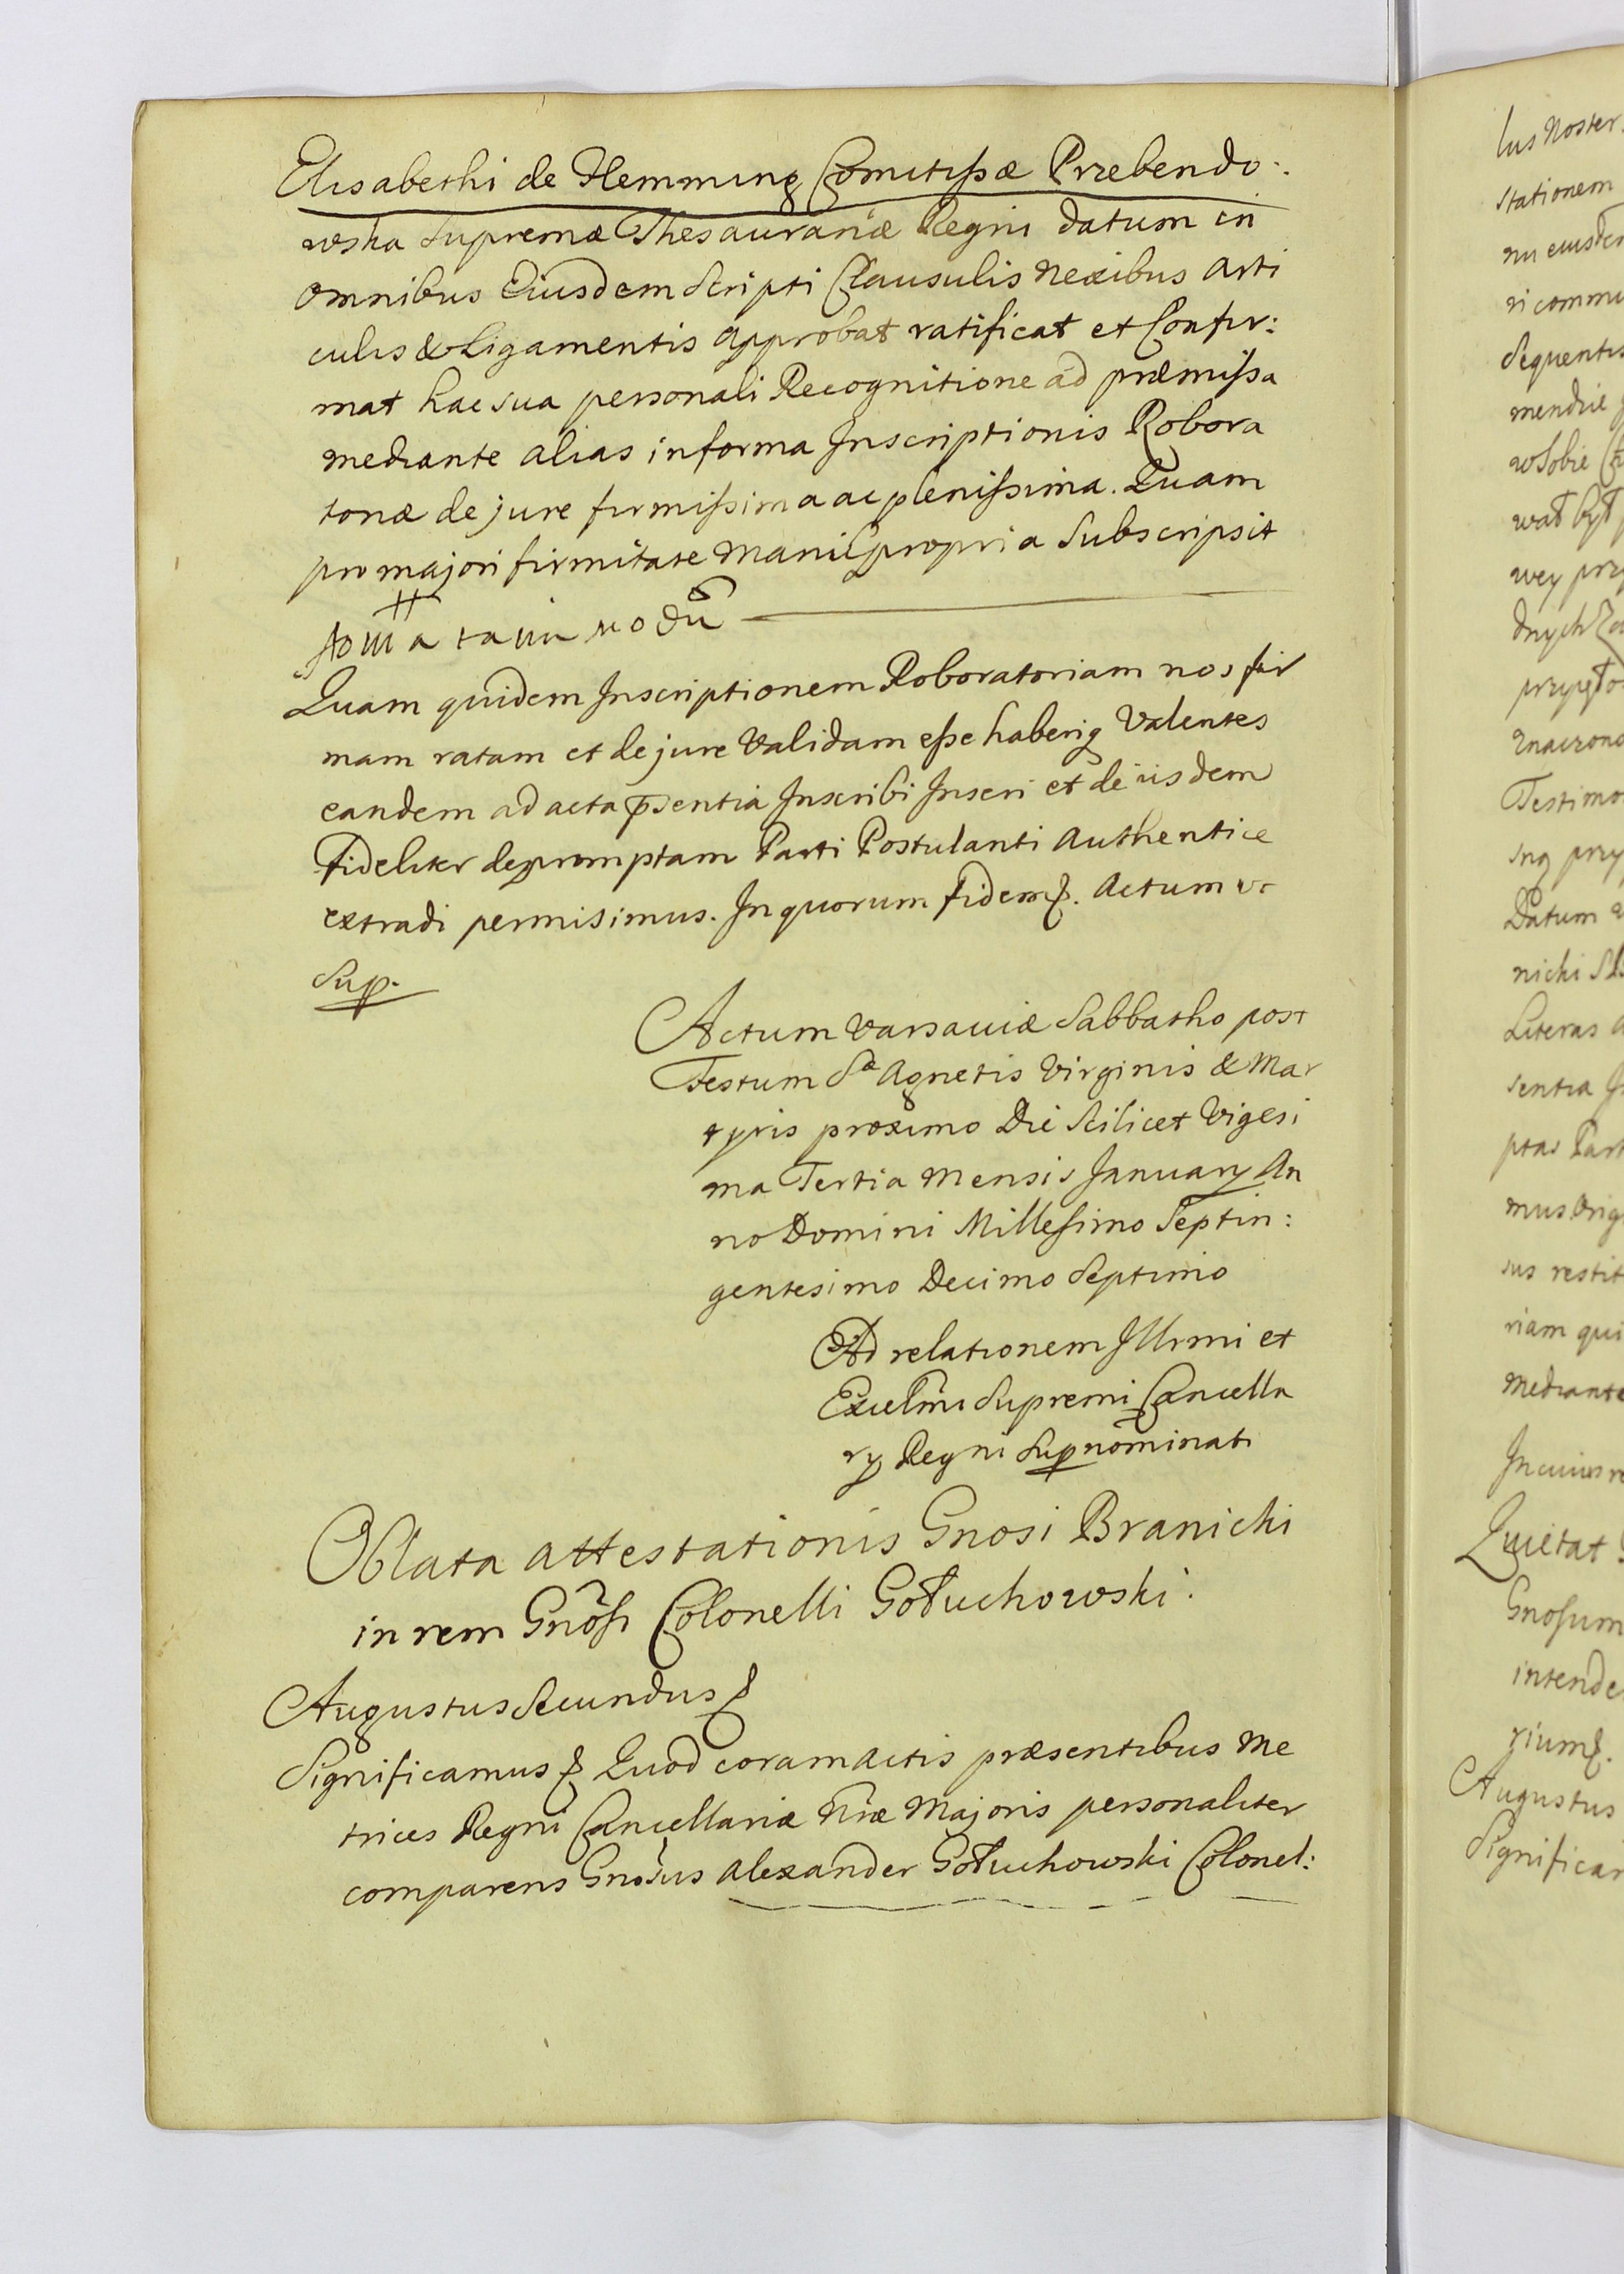 Elisabethi de Flemming Comitissæ Przebendo:
wska Supremæ Thesaurariæ Regni datum in
omnibus Eiusdem Scripti Clausulis Nexibus Arti
culis & Ligamentis approbat ratificat et Confir:
mat hac sua personali Recognitione ad præmissa
mediante alias in forma Inscriptionis Robora
toriæ de jure firmissima ac plenissima. Quam
pro majori firmitate Manu propria Subscripsit
Quam quidem Inscriptionem Roboratoriam nos fir
mam ratam et de jure Validam esse haberiq Valentes
eandem ad acta p̄sentia Inscribi Inseri et de iisdem
fideliter depromptam Parti Postulanti Authentice
extradi permisimus. In quorum fidem &. Actum ut
Sup.
Actum Varsaviæ Sabbatho post
Festum Sæ Agnetis Virginis & Mar
tyris proximo Die Scilicet Vigesi
ma Tertia Mensis January An
no Domini Millesimo Septin:
gentesimo Decimo Septimo
Ad relationem Illrmi et
Excelmi Supremi Cancella
ry Regni Supnominati
Oblata attestationis Gnosi Branicki
in rem Gnosi Colonelli Gołuchowski.
Augustus Secundus &
Significamus & Quod coram Actis præsentibus Me
trices Regni Cancellariæ Nræ Majoris personaliter
comparens Gnosus Alexander Gołuchowski Colonel:
lus Noster
stationem
Sequentis
mendzie
wsobie
wał być
wey
dnych
Testimo
inq
Datum
nicki
Literas
sentia
ptas Part
mus Orig
sus restit
riam qui
Mediante
In cuius re
Quietat
Gnosum
intende
rium &.
Augustus
Significam